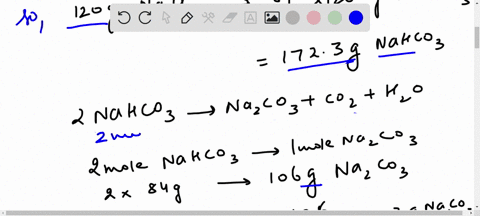 so, 120g
= 172.3g NaHCO3
2 NaHCO3 → Na2CO3 + CO2 + H2O
2
2mole NaHCO3 → 1mole Na2CO3
2 x 84g → 106g Na2CO3